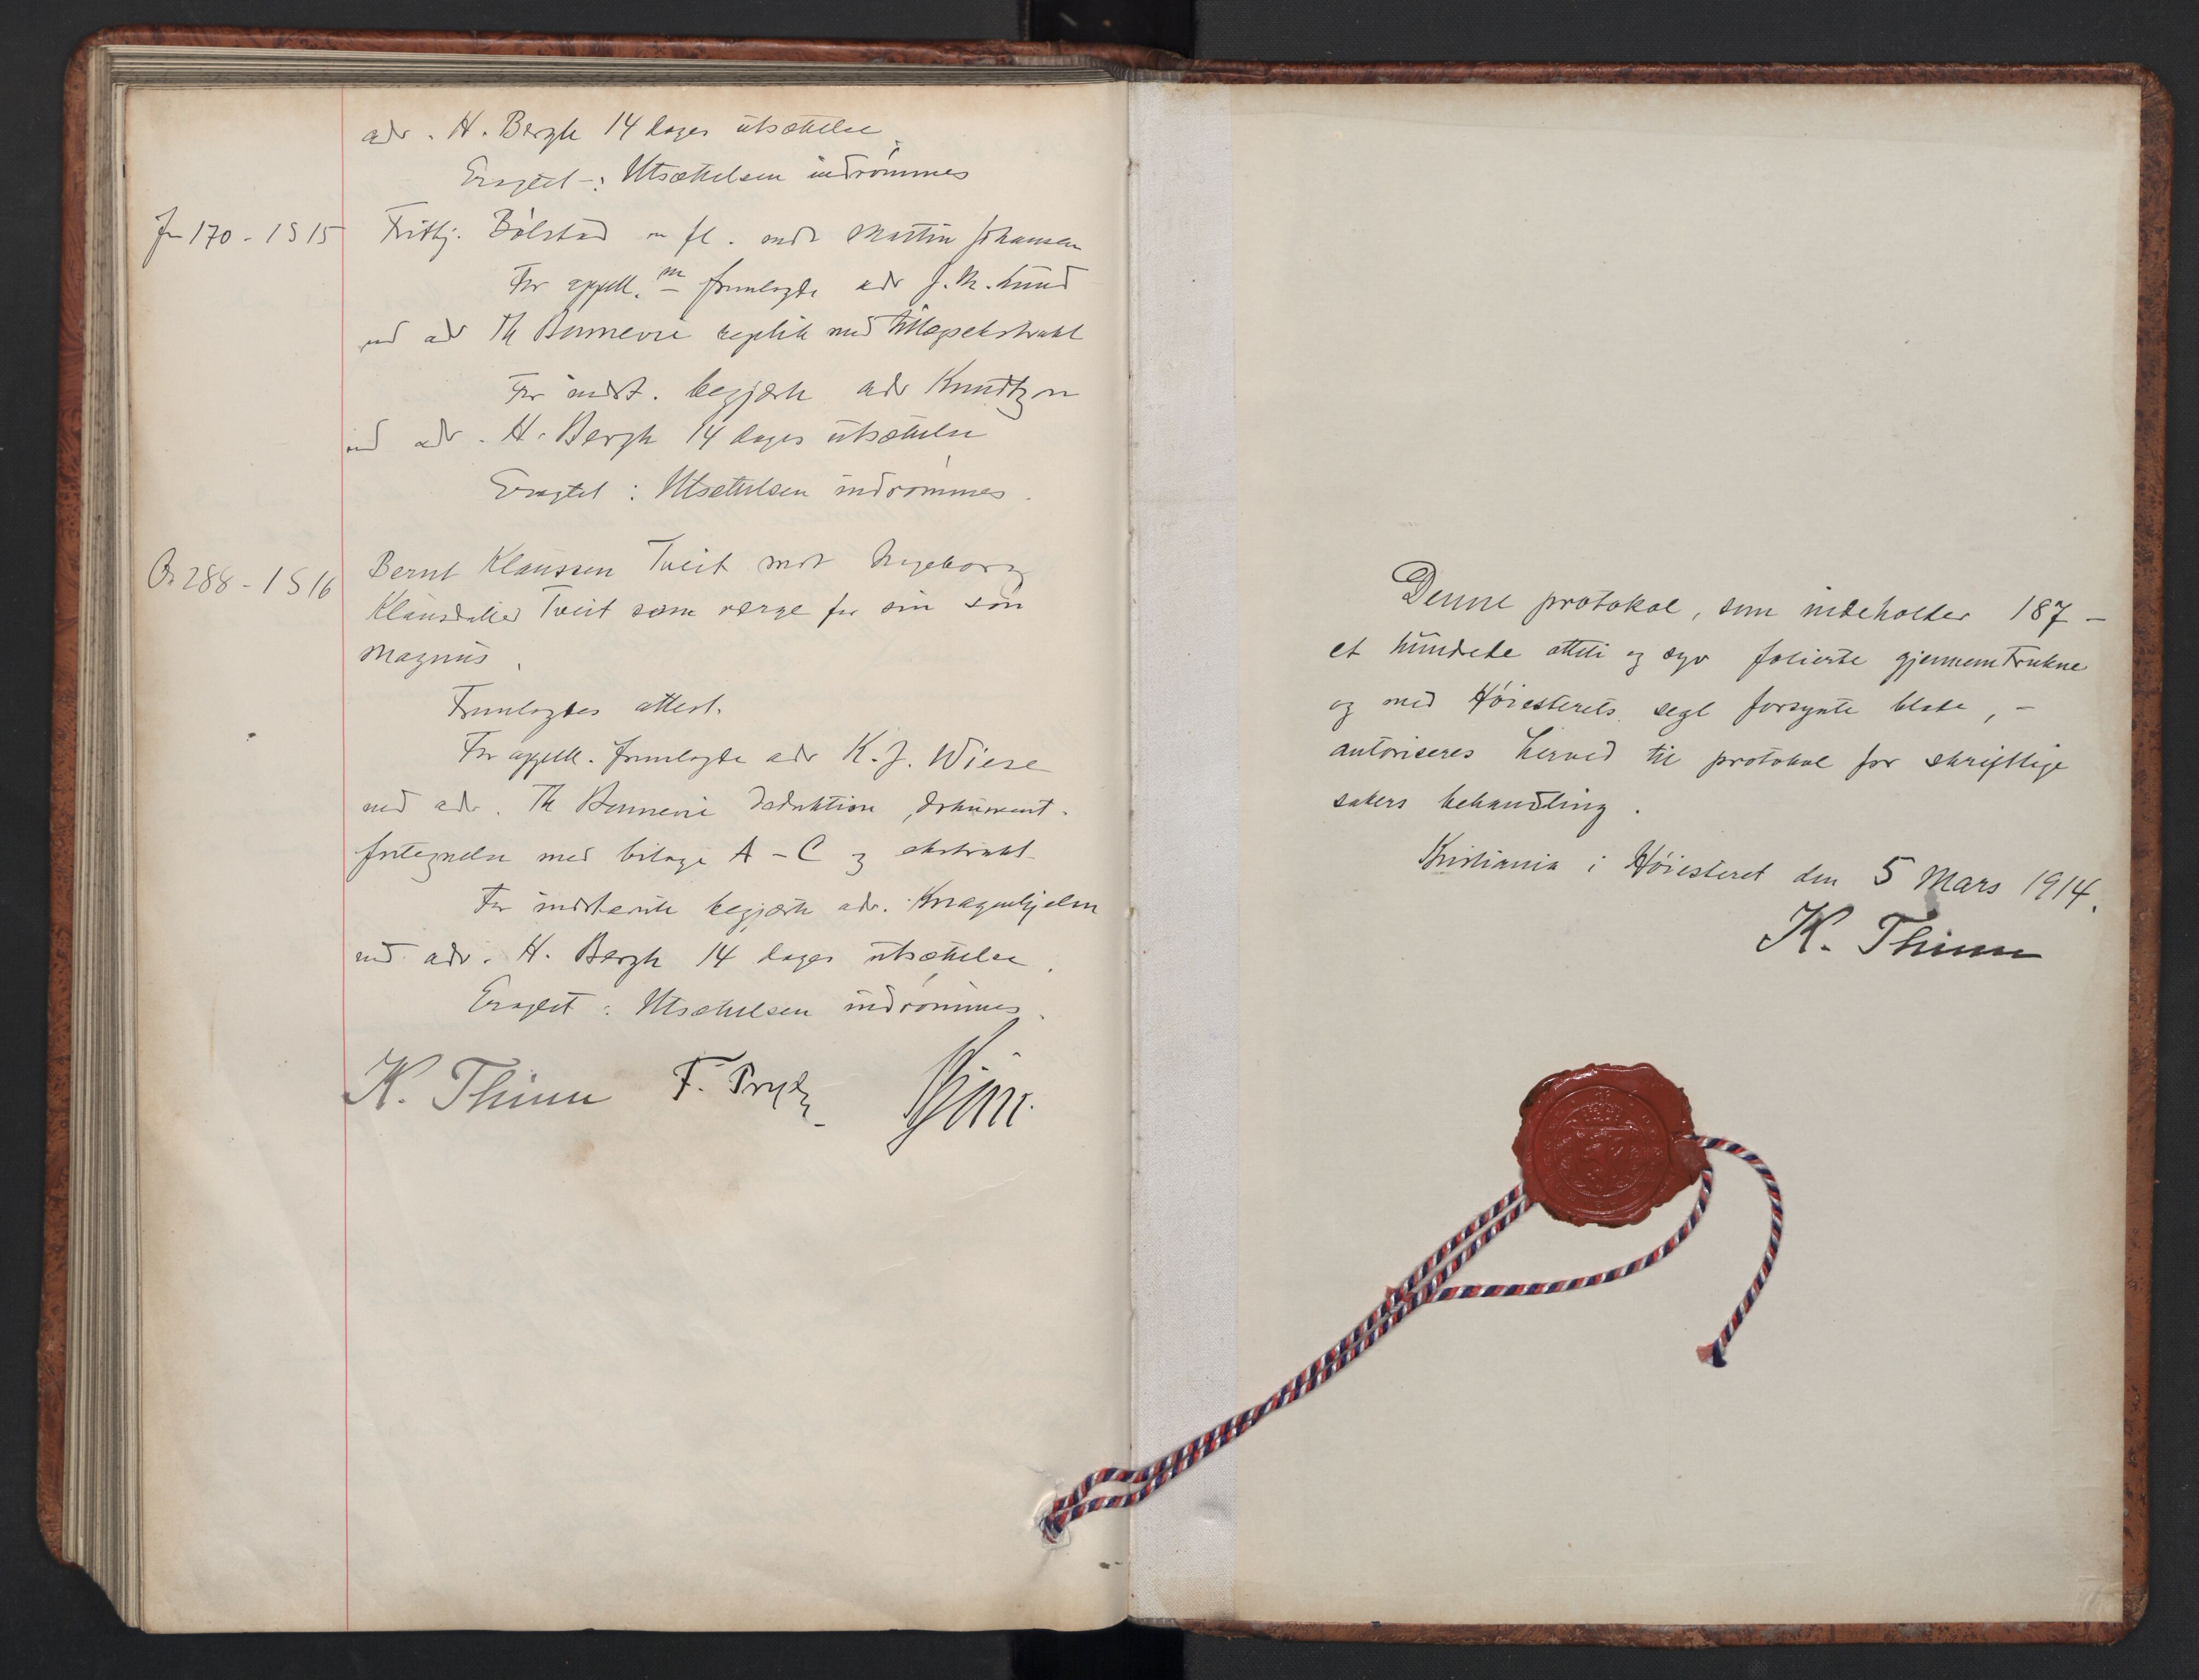 adv. H. Bergh 14 dages utsættelse
Eragtet: Utsættelsen indrømmes
170 - 1 S 15 Fritbj. Bølstad m fl. mot Martin Johansen
For appell. fremlagde adv J. M. Lund
ved adv Th Bonnevie replik med tillægsekstrakt
For indst. begjærte adv Knudtzon
ved adv. H. Bergh 14 dages utsættelse
Eragtet: Utsættelsen indrømmes.
288 - 1 S 16 Bernt Klaussen Tveit mot Ingeborg
Klausdatter Tveit som værge for sin søn
Magnus.
Fremlagdes attest.
For appell. fremlagde adv K. J. Wiese
ved adv. Th Bonnevie deduktion, dokument-
fortegnelse med bilage A - C og ekstrakt
For indstevnte begjærte adv. Knagenhjelm
ved adv. H. Bergh 14 dages utsættelse.
Eragtet: Utsættelsen indrømmes.
K. Thinn F. Prydz
Denne protokol, som indeholder 187 -
et hundrede otteti og syv folierte gjennemtrukne
og med Høiesterets segl forsynte blade, -
autoriseres herved til protokol for skriftlige
sakers behandling.
Kristiania i Høiesteret den 5 Mars 1914.
K. Thinn